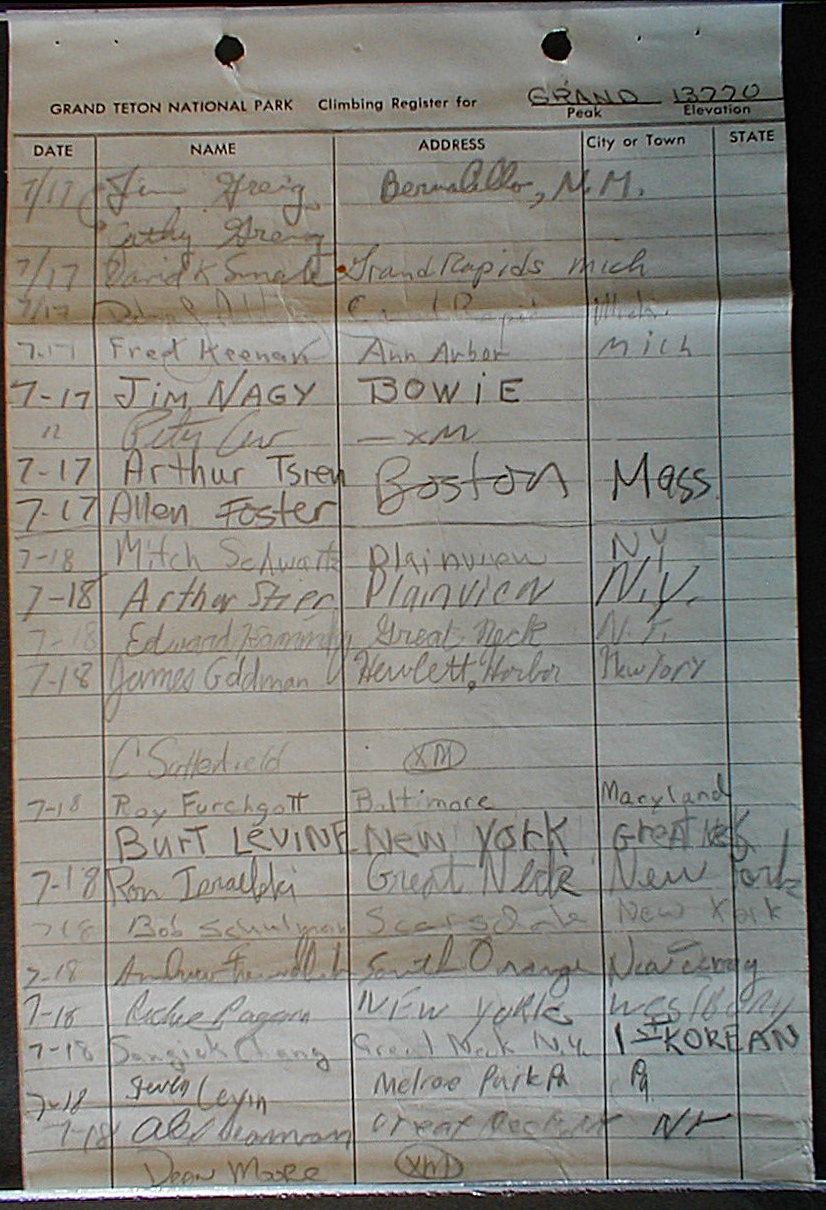 GRAND TETON NATIONAL PARK Climbing Register for GRAND 13770
Peak Elevation
DATE NAME ADDRESS City or Town STATE
7/17 Jim Greig Bernalillo, N.M.
Cathy Greig
7/17 David K Smale Grand Rapids Mich
7/17 Mich.
7-17 Fred Keenan Ann Arbor Mich
7-17 JIM NAGY BOWIE
11 - XM
7-17 Arthur Tsien Boston Mass.
7-17 Allen Foster
7-18 Mitch Schwartz Plainview NY
7-18 Arthur Plainview N.Y.
7-18 Edward Great Neck N.Y.
7-18 James Goldman Hewlett Harbor New York
C Satterfield XM
7-18 Roy Furchgott Baltimore Maryland
BURT LEVINE New York Great Neck
7-18 Ron Great Neck New York
7-18 Bob Schulman Scarsdale New York
7-18 Andrew South Orange New Jersey
7-18 Richie Pagan NEW YORK WESTBURY
7-18 Sangick Chang Great Neck N.Y. 1st KOREAN
7-18 Steven Levin Melrose Park Pa Pa
7-18 Great Neck NY NY
Dean Moore XM